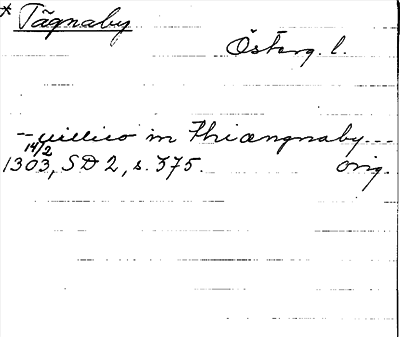 * Tägnaby
Österg. l.
-- villico in Thiængnaby ---
14/2
1303, SD 2, s. 375. orig.